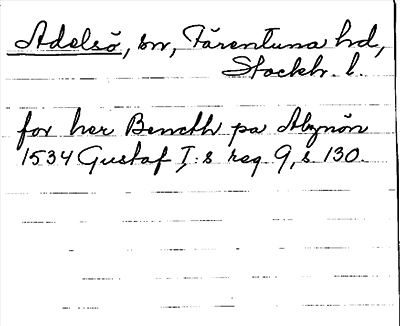 Adelsö, sn, Färentuna hd,
Stockh. l.
for her Bencth pa Alznön
1534 Gustaf I:s reg 9, s 130.